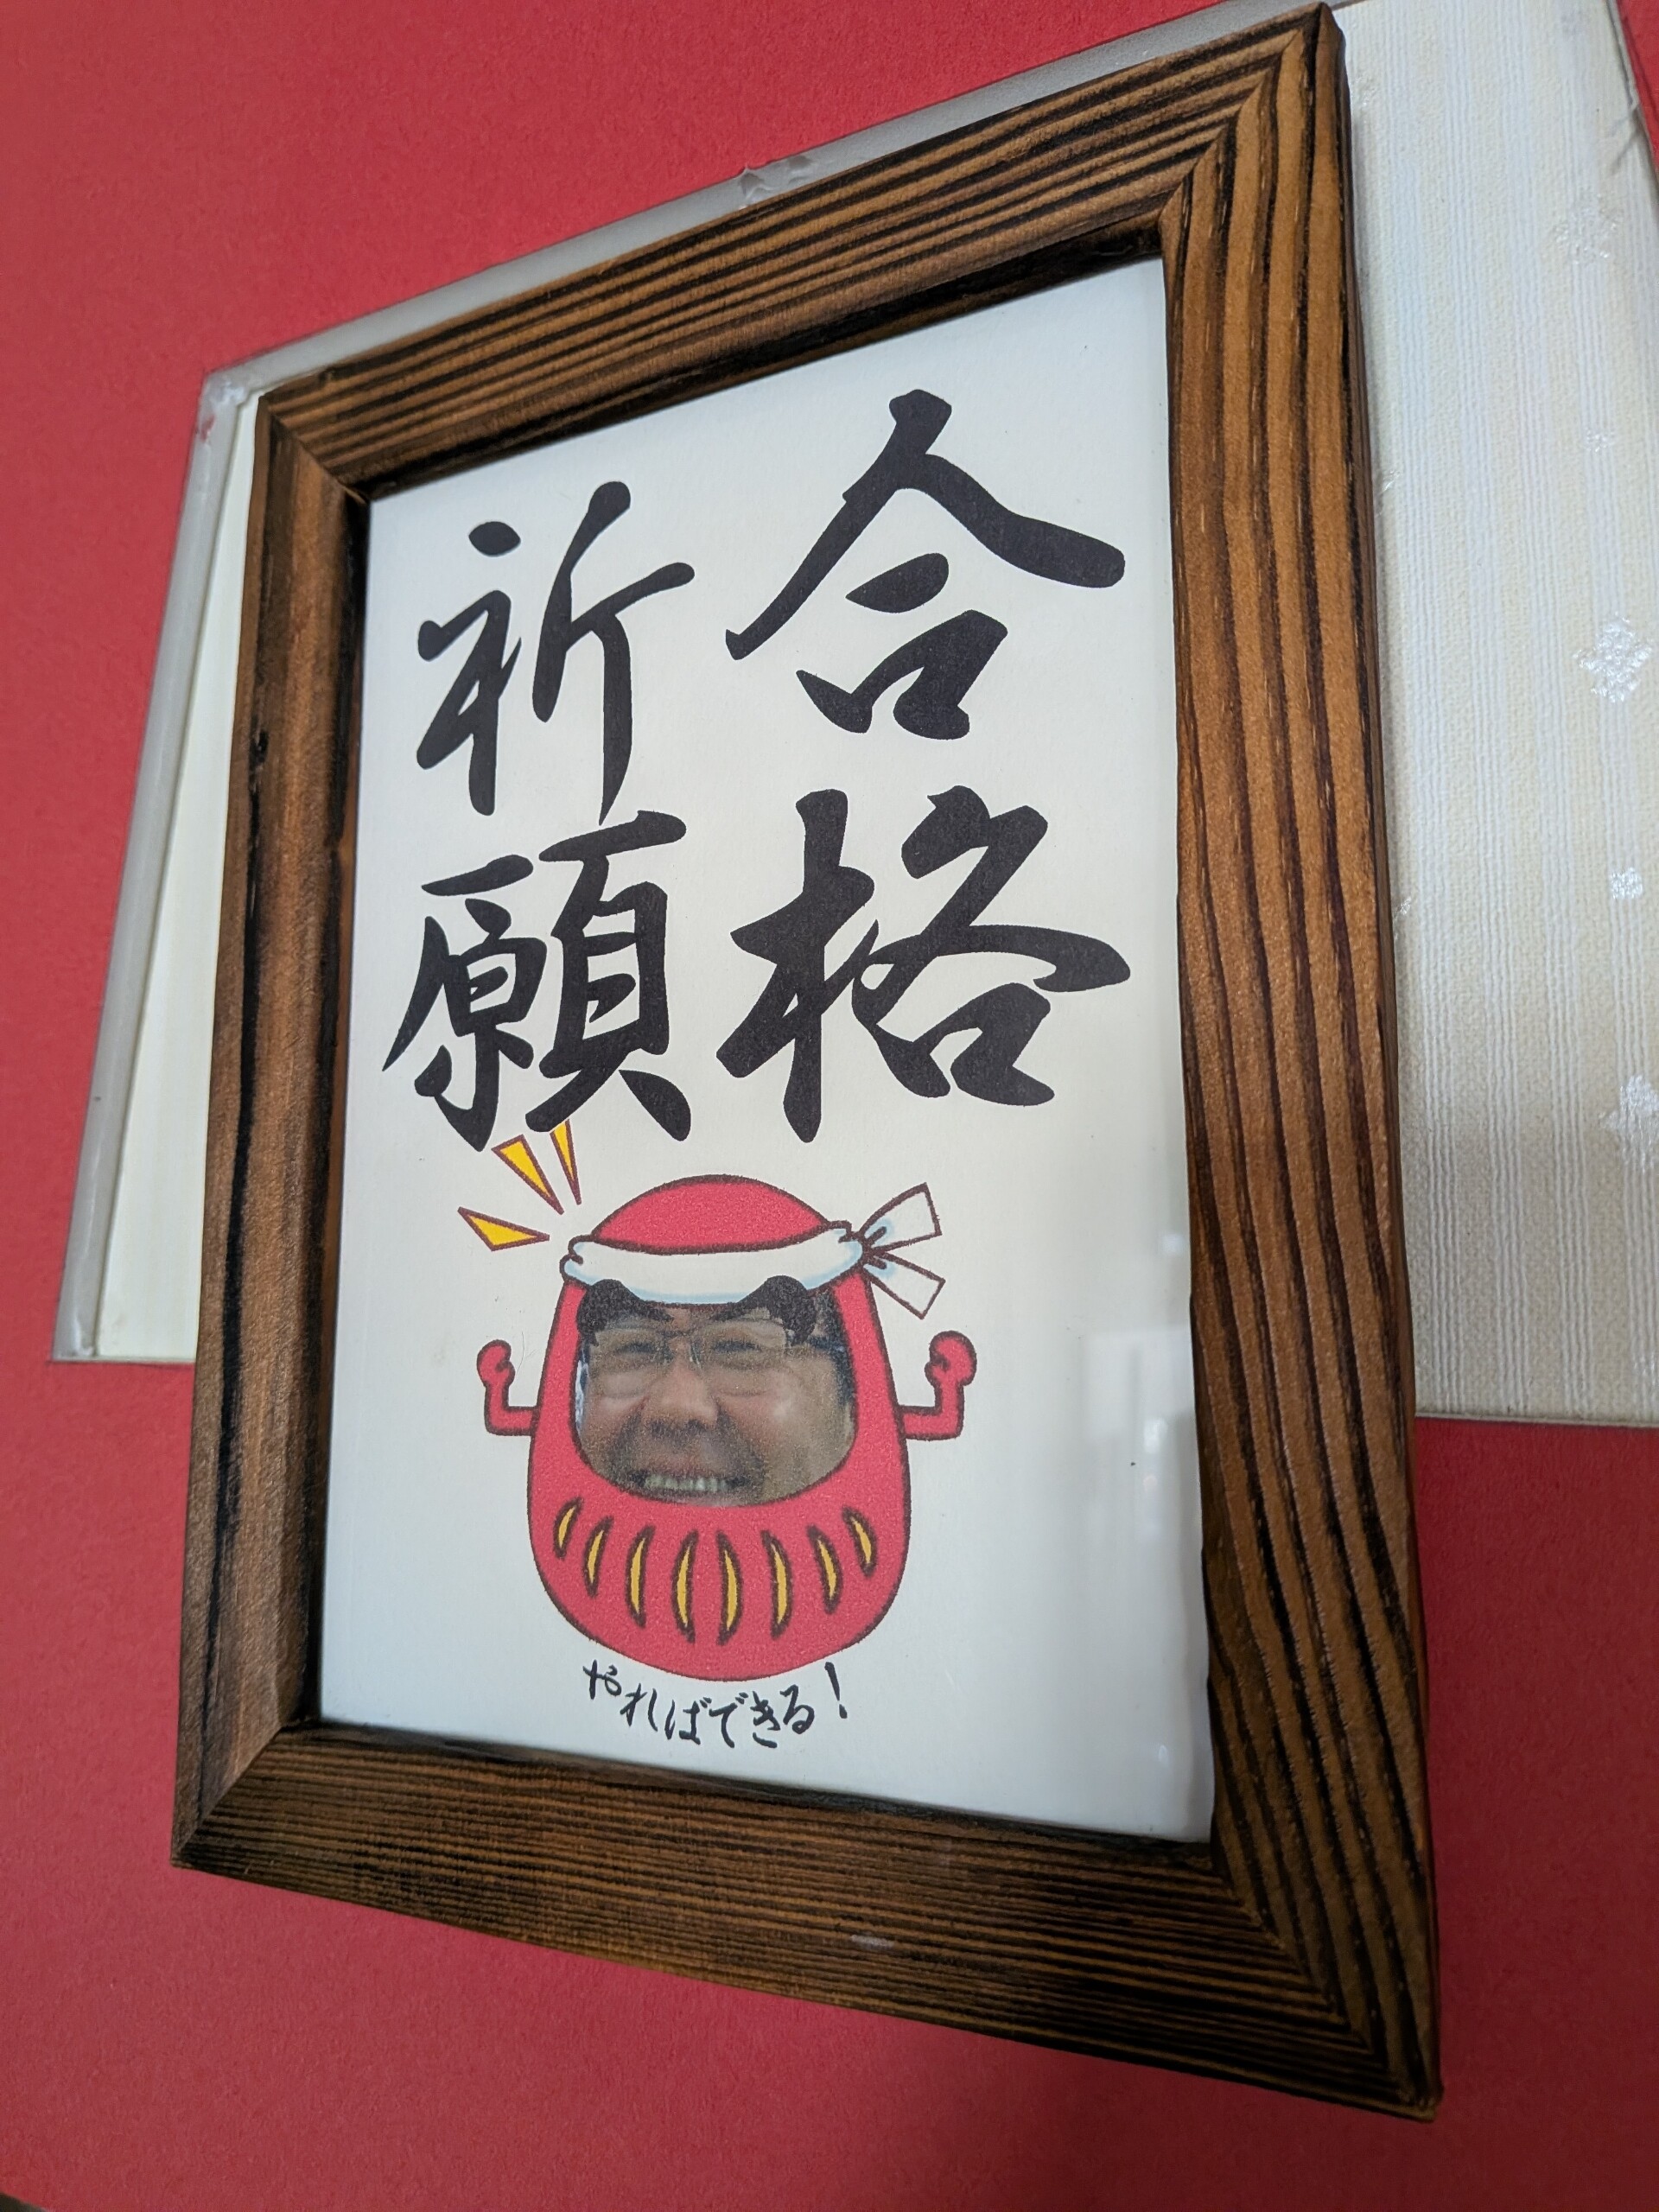 合格
祈願
やればできる!